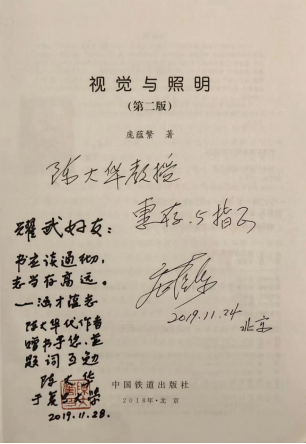 视觉与照明
(第二版)
庞蕴繁 著
陈大华教授
惠存与指正
庞蕴繁
2019.11.24
北京
耀武好友:
书应读通彻,
志当存高远。
陈大华代作者
赠书于您,并
题词互勉
陈大华
2019.11.28.
中国铁道出版社
2018年·北京